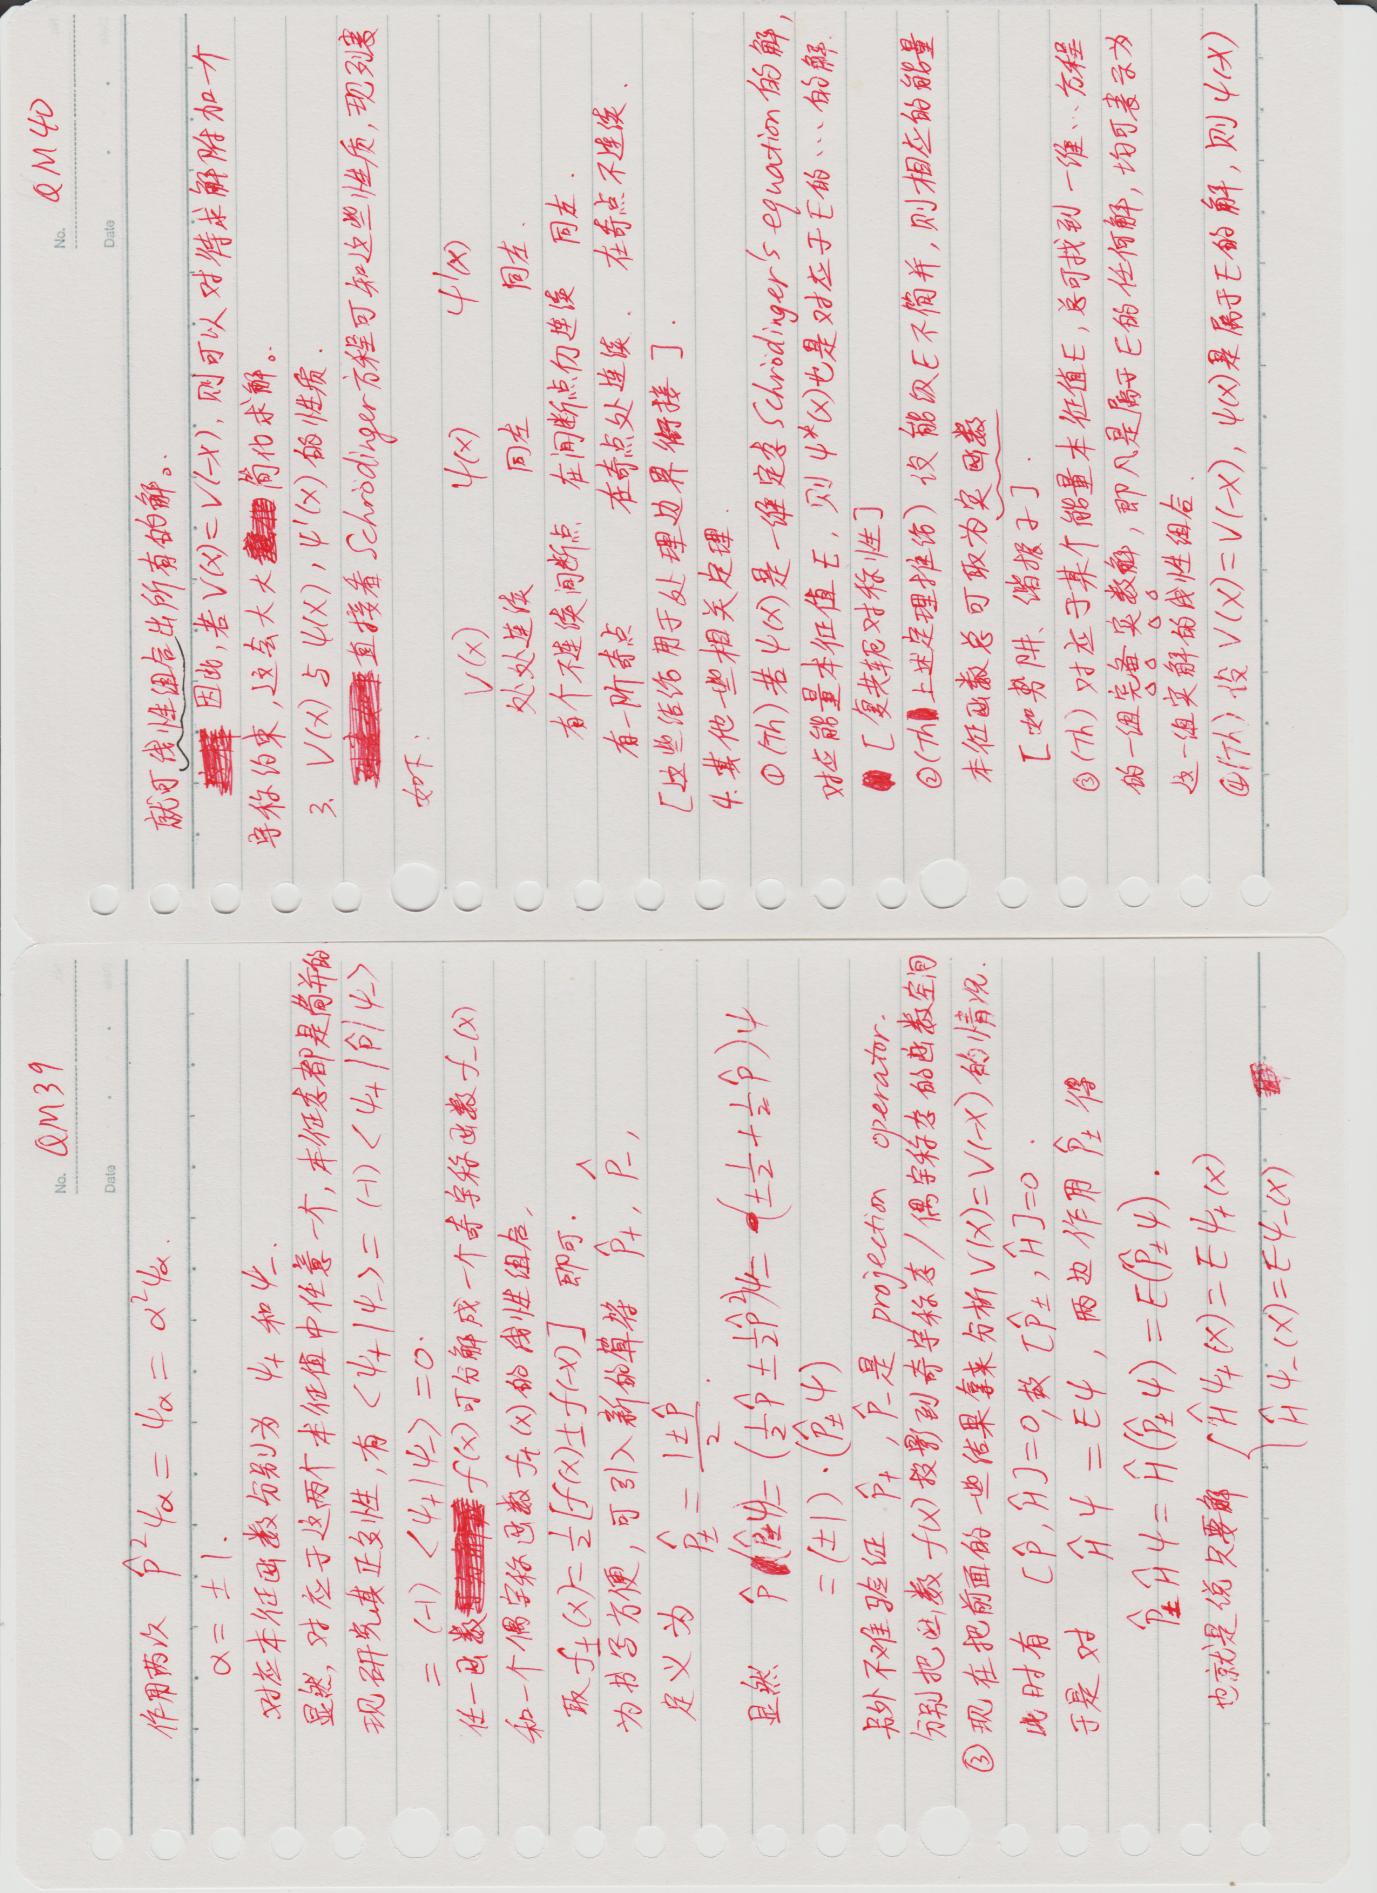 No. QM39
Date
作用两次 P̂²ψα = ψα = α²ψα.
α = ±1.
对应本征函数分别为 ψ₊ 和 ψ₋.
显然, 对应于这两个本征值中任意一个, 本征态都是简并的
现研究其正交性, 有 <ψ₊|ψ₋> = (-1) <ψ₊|P̂|ψ₋>
= (-1) <ψ₊|ψ₋> = 0.
任一函数 f(x) 可分解成一个奇宇称函数 f₋(x)
和一个偶宇称函数 f₊(x) 的线性组合,
取 f±(x) = ½[f(x) ± f(-x)] 即可.
为书写方便, 可引入新的算符 P̂₊, P̂₋,
定义为 P̂± = (1±P̂)/2.
显然 P̂(P̂±ψ) = (½P̂ ± ½P̂²)ψ = (±½ + ½P̂)ψ
= (±1)·(P̂±ψ)
另外不难验证 P̂₊, P̂₋是 projection operator.
分别把函数 f(x) 投影到奇宇称态/偶宇称态的函数空间
③ 现在把前面的一些结果拿来分析 V(x)=V(-x) 的情况.
此时有 [P̂, Ĥ]=0, 故 [P̂±, Ĥ]=0.
于是对 Ĥψ = Eψ, 两边作用 P̂± 得
P̂±Ĥψ = Ĥ(P̂±ψ) = E(P̂±ψ).
也就是说只要解 { Ĥψ₊(x) = Eψ₊(x)
Ĥψ₋(x) = Eψ₋(x)
No. QM40
Date
就可线性组合出所有的解。
因此, 若 V(x)=V(-x), 则可以对待求解附加一个
宇称约束, 这会大大简化求解。
3. V(x) 与 ψ(x), ψ'(x) 的性质.
直接看 Schrödinger 方程可知这些性质, 现列表
如下:
V(x) ψ(x) ψ'(x)
处处连续 同左 同左.
有个不连续间断点 在间断点仍连续 同左.
有一阶奇点 在奇点处连续. 在奇点不连续.
[这些结论用于处理边界衔接].
4. 其他一些相关定理.
① (Th) 若 ψ(x) 是一维定态 Schrödinger's equation 的解,
对应能量本征值 E, 则 ψ*(x) 也是对应于 E 的 … 的解.
[复共轭对称性]
② (Th 上述定理推论) 设能级 E 不简并, 则相应的能量
本征函数总可取为实函数
[如势阱、谐振子].
③ (Th) 对应于某个能量本征值 E, 总可找到一维…方程
的一组完备实数解, 即凡是属于 E 的任何解, 均可表示为
这一组实解的线性组合.
④ (Th) 设 V(x)=V(-x), ψ(x) 是属于 E 的解, 则 ψ(-x)